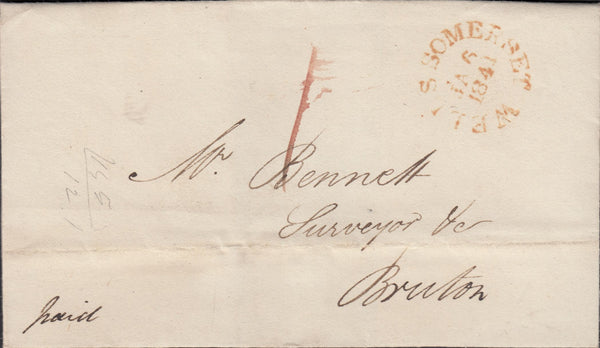 WELLS SOMERSET
JA 6
1841
1
Mr. Bennett
Surveyor &c
Bruton
paid